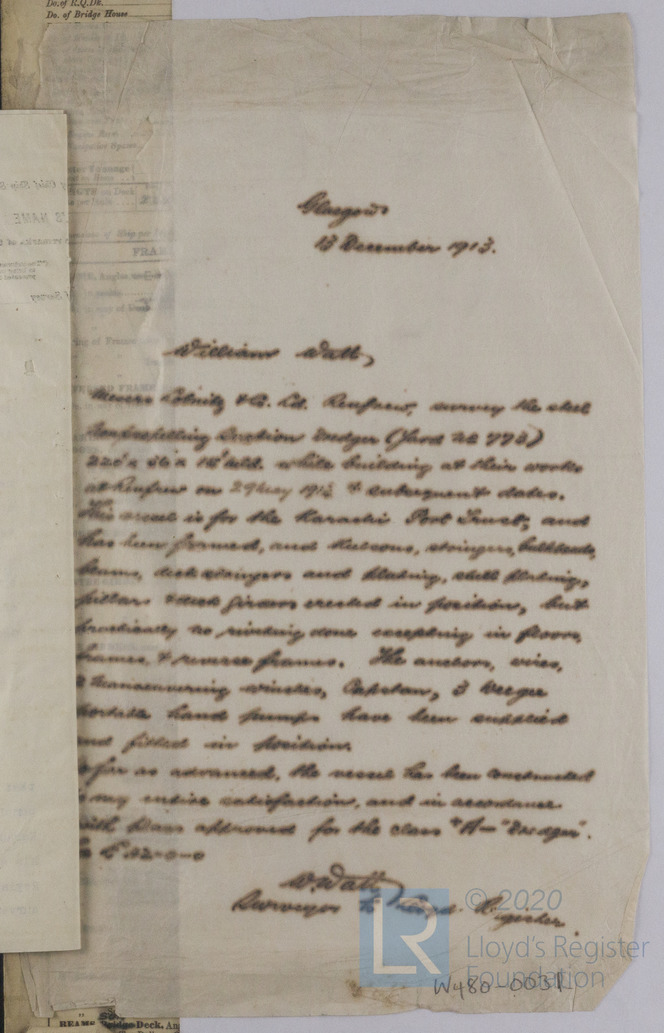 Do. of R.Q.Dk.
Do. of Bridge House
FRA
Glasgow
13 December 1913.
William Watt,
Messrs Lobnitz & Co. Ld. Renfrew, survey the steel
Nonpropelling Suction Dredger (Yard No 773)
while building at their works
at Renfrew on 29 May 1913 & subsequent dates.
This vessel is for the Karachi Port Trust, and
has been framed, and keelsons, stringers, bulkheads,
beams, deck stringers and plating, shell plating,
pillars & deck girders erected in position, but
practically no riveting done excepting in floors,
frames, & reverse frames. The anchors, wires,
2 manoeuvering winches, Capstan, 3
portable hand pumps have been supplied
and fitted in position.
so far as advanced, the vessel has been constructed
to my entire satisfaction, and in accordance
with plans approved for the class "A- "Dredger".
W Watt
Surveyor to Lloyd's Register.
LR
© 2020
Lloyd's Register
Foundation
W480-0031
BEAMS
Bridge Deck, An